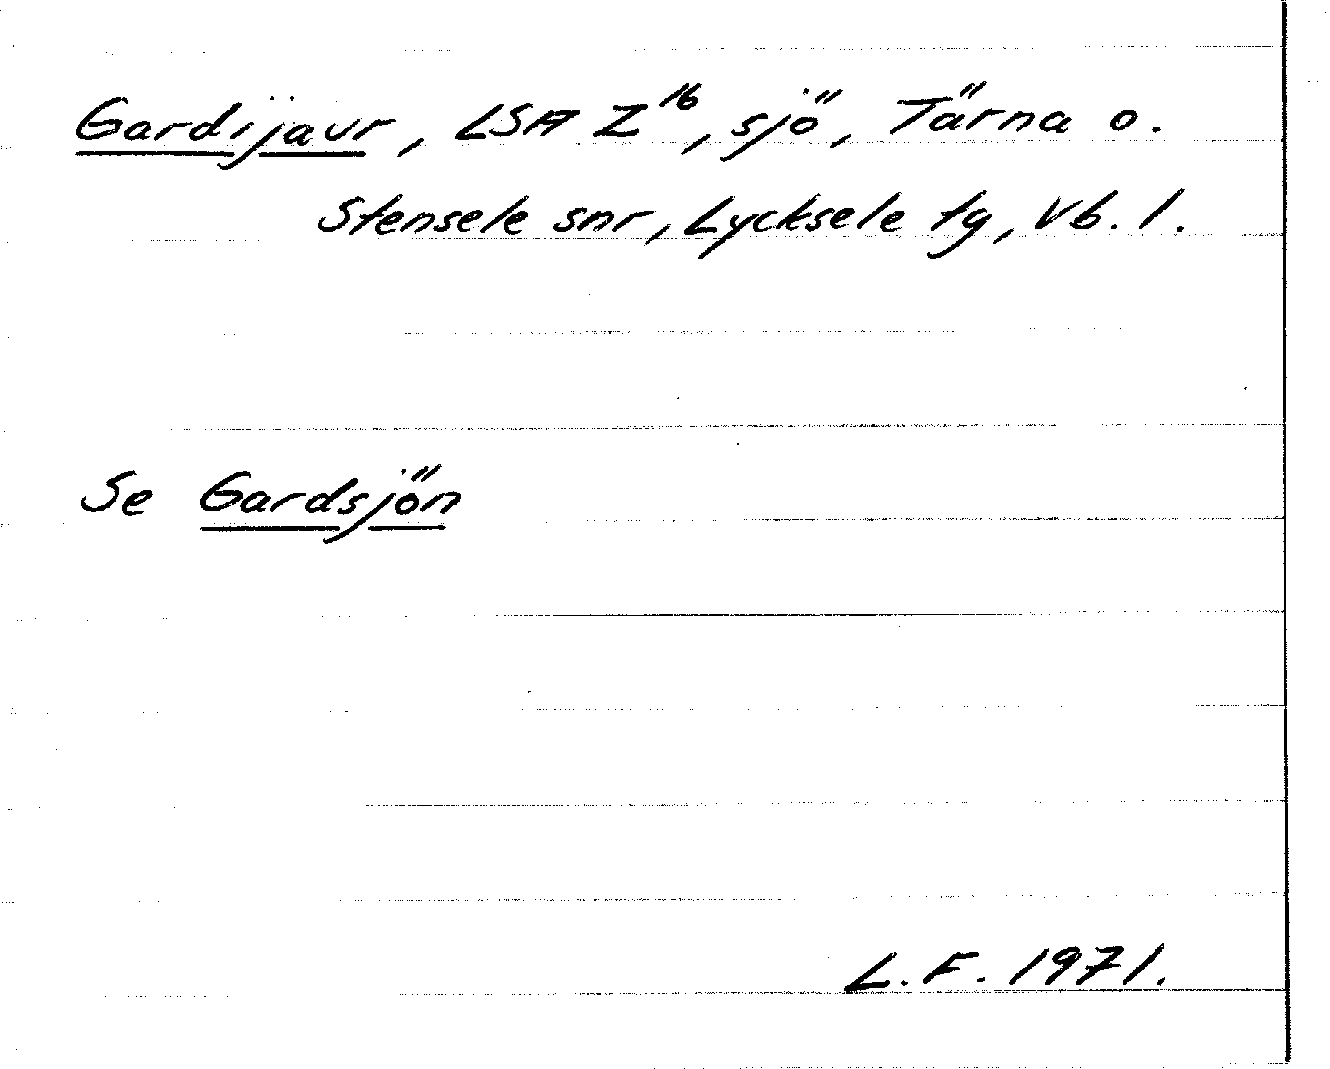 Gardijaur, LSA Z16, sjö, Tärna o.
Stensele snr, Lycksele tg, Vb. l.
Se Gardsjön
L. F. 1971.